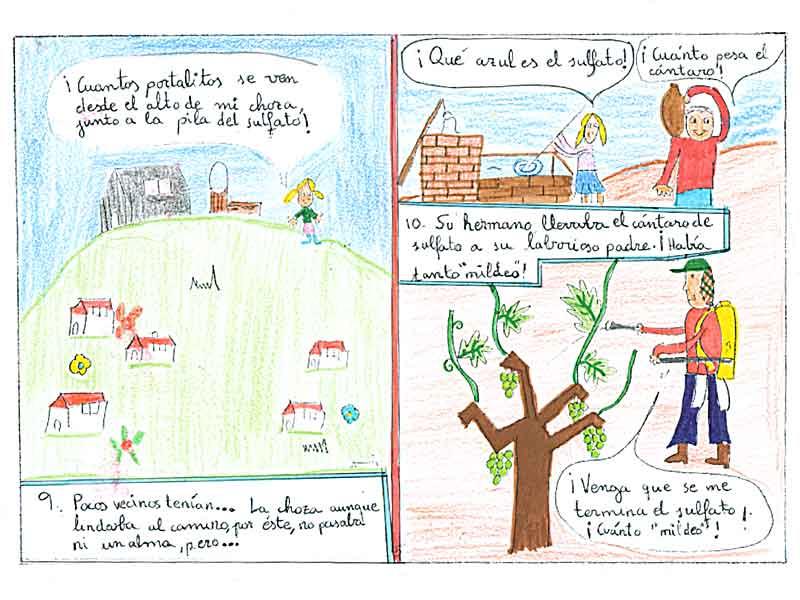 ¡Cuantos portalitos se ven
desde el alto de mi choza,
junto a la pila del sulfato!
9. Pocos vecinos tenían... La choza aunque
lindaba al camino, por éste, no pasaba
ni un alma, pero...
¡Qué azul es el sulfato!
¡Cuánto pesa el
cántaro!
10. Su hermano llevaba el cántaro de
sulfato a su laborioso padre. ¡Había
tanto "mildeo"!
¡Venga que se me
termina el sulfato!
¡Cuánto "mildeo"!